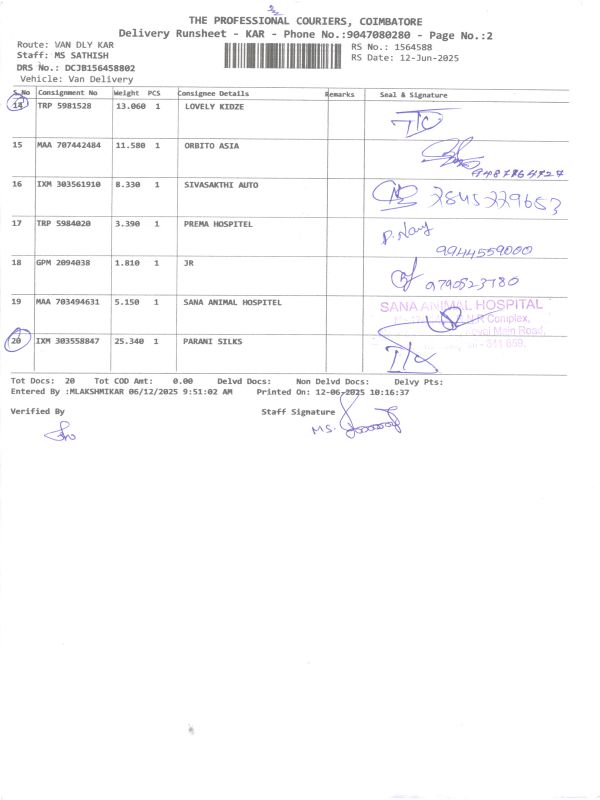 THE PROFESSIONAL COURIERS, COIMBATORE
Delivery Runsheet - KAR - Phone No.:9047080280 - Page No.:2
Route: VAN DLY KAR
RS No.: 1564588
Staff: MS SATHISH
RS Date: 12-Jun-2025
DRS No.: DCJB156458802
Vehicle: Van Delivery
S.No Consignment No Weight PCS Consignee Details Remarks Seal & Signature
14 TRP 5981528 13.060 1 LOVELY KIDZE T/C
15 MAA 707442484 11.580 1 ORBITO ASIA
16 IXM 303561910 8.330 1 SIVASAKTHI AUTO 7845229653
17 TRP 5984020 3.390 1 PREMA HOSPITEL
9944559000
18 GPM 2094038 1.810 1 JR 9790523780
19 MAA 703494631 5.150 1 SANA ANIMAL HOSPITEL SANA ANIMAL HOSPITAL
Complex,
Main Road,
20 IXM 303558847 25.340 1 PARANI SILKS T/C
Tot Docs: 20 Tot COD Amt: 0.00 Delvd Docs: Non Delvd Docs: Delvy Pts:
Entered By :MLAKSHMIKAR 06/12/2025 9:51:02 AM Printed On: 12-06-2025 10:16:37
Verified By Staff Signature
MS.